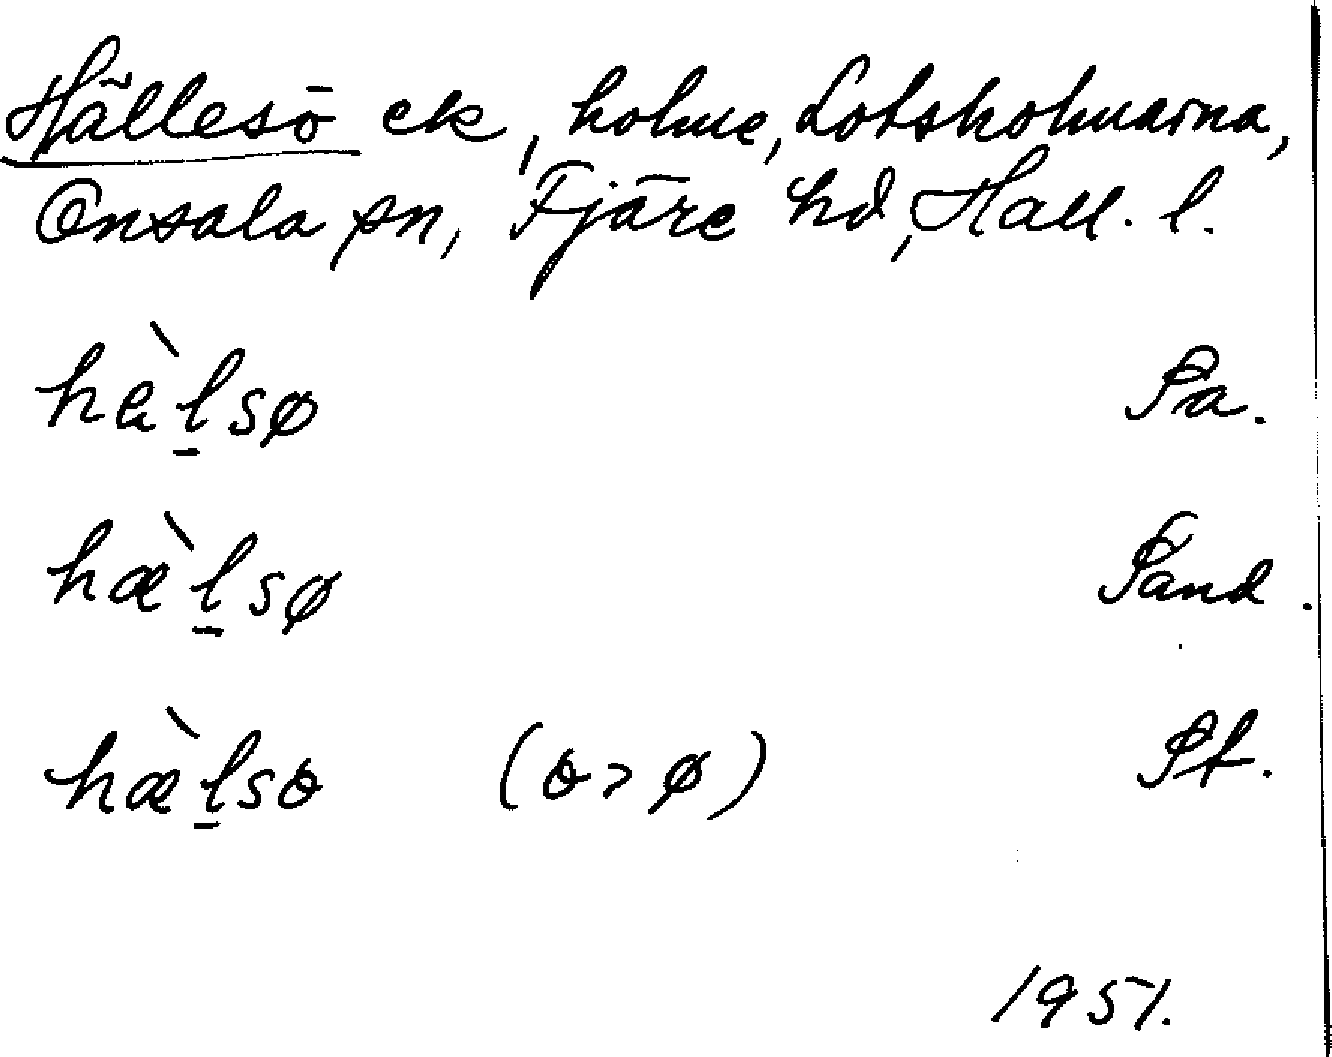 Hällesö ek, holme, Lotsholmarna,
Onsala sn, Fjäre hd, Hall. l.
hὲ̀l̠sø Pa.
hæ̀l̠sø Sand.
hæ̀l̠sɵ (ɵ > ø) Pf.
1951.